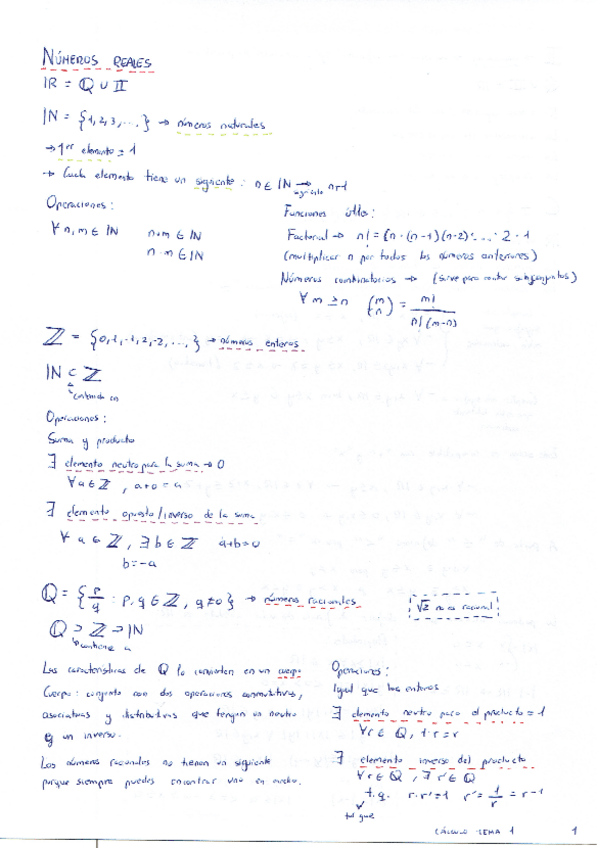 NÚMEROS REALES
IR = Q ∪ II
IN = {1,2,3,...} → números naturales
→ 1er elemento = 1
→ Cada elemento tiene un siguiente: n ∈ IN → n+1
siguiente
Operaciones:
∀ n,m ∈ IN n+m ∈ IN
n·m ∈ IN
Funciones útiles:
Factorial → n! = (n·(n-1)(n-2)·...·2·1
(multiplicar n por todos los números anteriores)
Números combinatorios → (sirve para contar subconjuntos)
∀ m ≥ n (m n) = m! / n!(m-n)
Z = {0,1,-1,2,-2,...,} → números enteros
IN ⊂ Z
contenido en
Operaciones:
Suma y producto
∃ elemento neutro para la suma → 0
∀a ∈ Z, a+0 = a
∃ elemento opuesto/inverso de la suma
∀ a ∈ Z, ∃ b ∈ Z a+b=0
b=-a
Q = {p/q : p,q ∈ Z, q≠0} → números racionales
√2 no es racional
Q ⊃ Z ⊃ IN
contiene a
Las características de Q lo convierten en un cuerpo
Cuerpo: conjunto con dos operaciones conmutativas,
asociativas y distributivas que tengan un neutro
y un inverso.
Los números racionales no tienen un siguiente
porque siempre puedes encontrar uno en medio.
Operaciones:
Igual que los enteros
∃ elemento neutro para el producto = 1
∀r ∈ Q, 1·r=r
∃ elemento inverso del producto
∀r ∈ Q, ∃ r' ∈ Q
t.q. r·r'=1 r' = 1/r = r-1
tal que
CÁLCULO TEMA 1 1